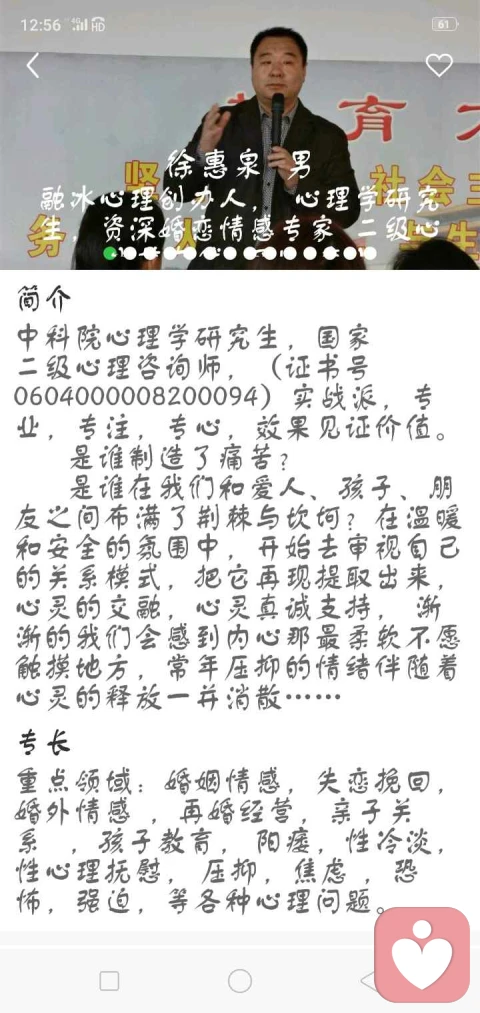 12:56
4G
HD
61
教育
坚
社会主
务
人
生
徐惠泉 男
融冰心理创办人， 心理学研究
生，资深婚恋情感专家 二级心
简介
中科院心理学研究生，国家
二级心理咨询师，（证书号
0604000008200094）实战派，专
业，专注，专心，效果见证价值。
是谁制造了痛苦？
是谁在我们和爱人、孩子、朋
友之间布满了荆棘与坎坷？在温暖
和安全的氛围中，开始去审视自己
的关系模式，把它再现提取出来，
心灵的交融，心灵真诚支持， 渐
渐的我们会感到内心那最柔软不愿
触摸地方，常年压抑的情绪伴随着
心灵的释放一并消散……
专长
重点领域：婚姻情感，失恋挽回，
婚外情感 ，再婚经营，亲子关
系 ，孩子教育，阳痿，性冷淡，
性心理抚慰，压抑，焦虑 ，恐
怖，强迫，等各种心理问题。